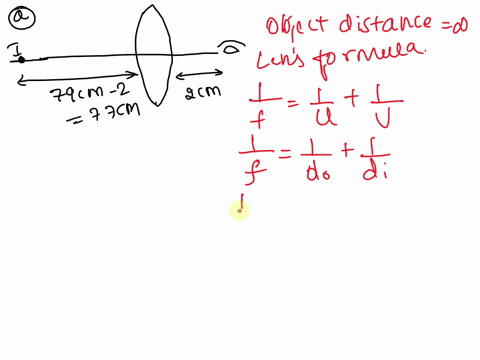 a
I
79cm-2
= 77cm
2cm
Object distance = ∞
Lens formula.
1/f = 1/u + 1/v
1/f = 1/do + 1/di
1